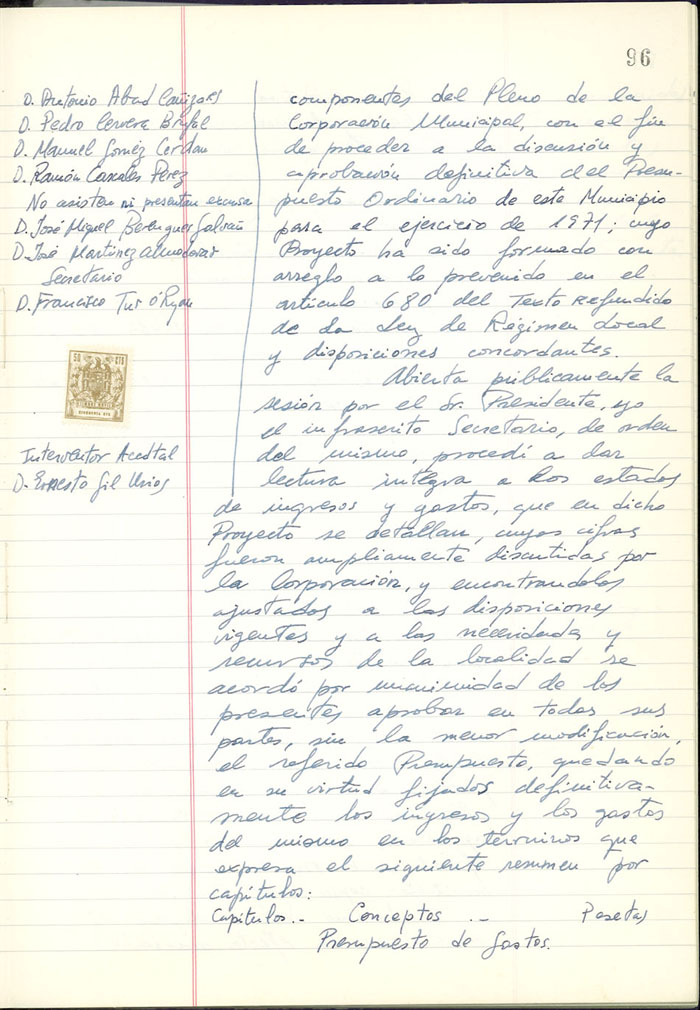 96
D. Antonio Abad Cañizares
D. Pedro Cervera Brufal
D. Manuel Gomez Cerdan
D. Ramón Casales Pérez
No asisten ni presentan excusa
D. José Miguel Berenguer Galvañ
D. José Martinez Almodovar
Secretario
D. Francisco Tur O'Ryan
50 CTS
Interventor Accdtal
D. Ernesto Gil Urios
componentes del Pleno de la
Corporación Municipal, con el fin
de proceder a la discusión y
aprobación definitiva del Presu-
puesto Ordinario de este Municipio
para el ejercicio de 1971; cuyo
Proyecto ha sido formado con
arreglo a lo prevenido en el
artículo 680 del Texto Refundido
de La Ley de Régimen Local
y disposiciones concordantes.
Abierta públicamente la
sesión por el Sr. Presidente, yo
el infrascrito Secretario, de orden
del mismo, procedí a dar
lectura integra a los estados
de ingresos y gastos, que en dicho
Proyecto se detallan, cuyas cifras
fueron ampliamente discutidas por
la Corporación, y encontrandolas
ajustados a las disposiciones
vigentes y a las necesidades y
recursos de la localidad se
acordó por unanimidad de los
presentes aprobar en todas sus
partes, sin la menor modificación,
el referido Presupuesto, quedando
en su virtud fijados definitiva-
mente los ingresos y los gastos
del mismo en los terminos que
expresa el siguiente resumen por
capítulos:
Capítulos.- Conceptos .- Pesetas
Presupuesto de Gastos.